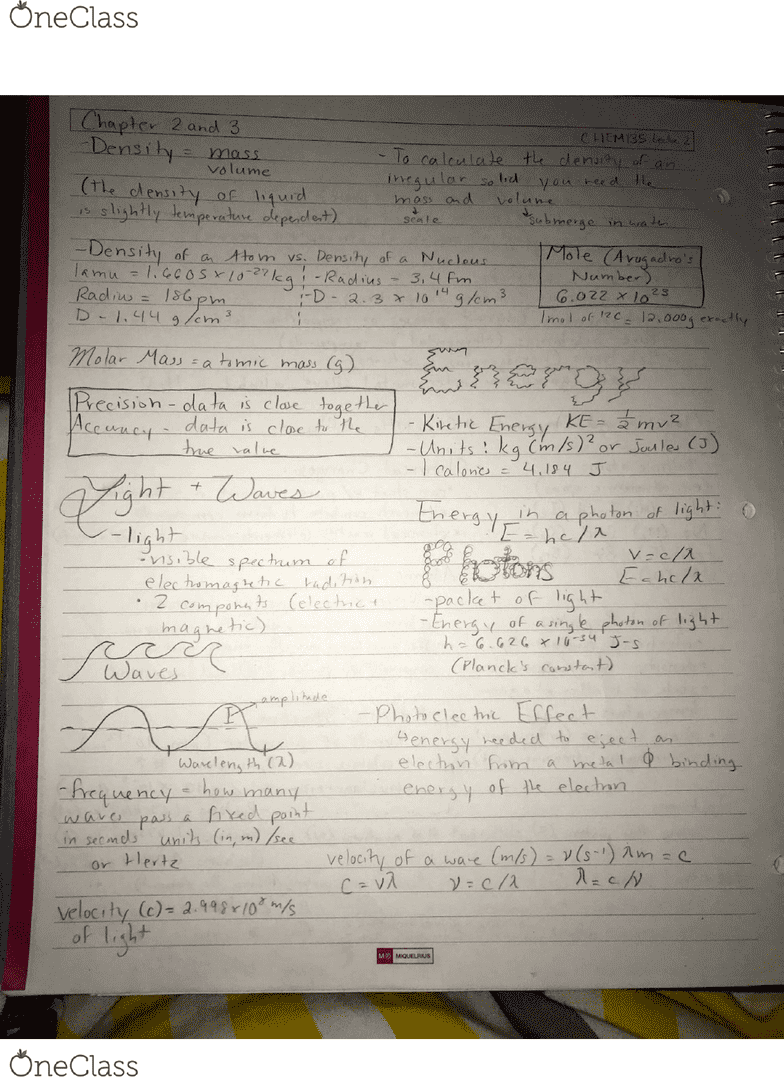 OneClass
Chapter 2 and 3
CHEM135
-Density = mass
volume
(the density of liquid
is slightly temperature dependent)
- To calculate the density of an
irregular solid you need the
mass and volume
scale
submerge in water
-Density of an Atom vs. Density of a Nucleus
1amu = 1.6605 x 10-27 kg
Radius = 186 pm
D - 1.44 g/cm3
-Radius - 3.4 fm
-D - 2.3 x 10 14 g/cm3
Mole (Avogadro's
Number)
6.022 x 10 23
1mol of 12C = 12.000g exactly
Molar Mass = atomic mass (g)
Precision - data is close together
Accuracy - data is close to the
true value
Energy
- Kinetic Energy KE = 1/2 mv2
-Units: kg (m/s)2 or Joules (J)
- 1 calories = 4.184 J
Light + Waves
-light
·visible spectrum of
electromagnetic radition
· 2 components (electric +
magnetic)
Waves
amplitude
Wavelength (λ)
-frequency = how many
waves pass a fixed point
in seconds units (in, m) /sec
or Hertz
velocity (c) = 2.998 x 10 8 m/s
of light
Energy in a photon of light:
E = hc/λ
Photons
v = c/λ
E = hc/λ
-packet of light
-Energy of a single photon of light
h = 6.626 x 10-34 J-s
(Planck's constant)
-Photoelectric Effect
↳energy needed to eject an
electron from a metal Φ binding
energy of the electron
velocity of a wave (m/s) = ν(s-1) λm = c
C = νλ ν = c/λ λ = c/ν
MIQUELRIUS
OneClass